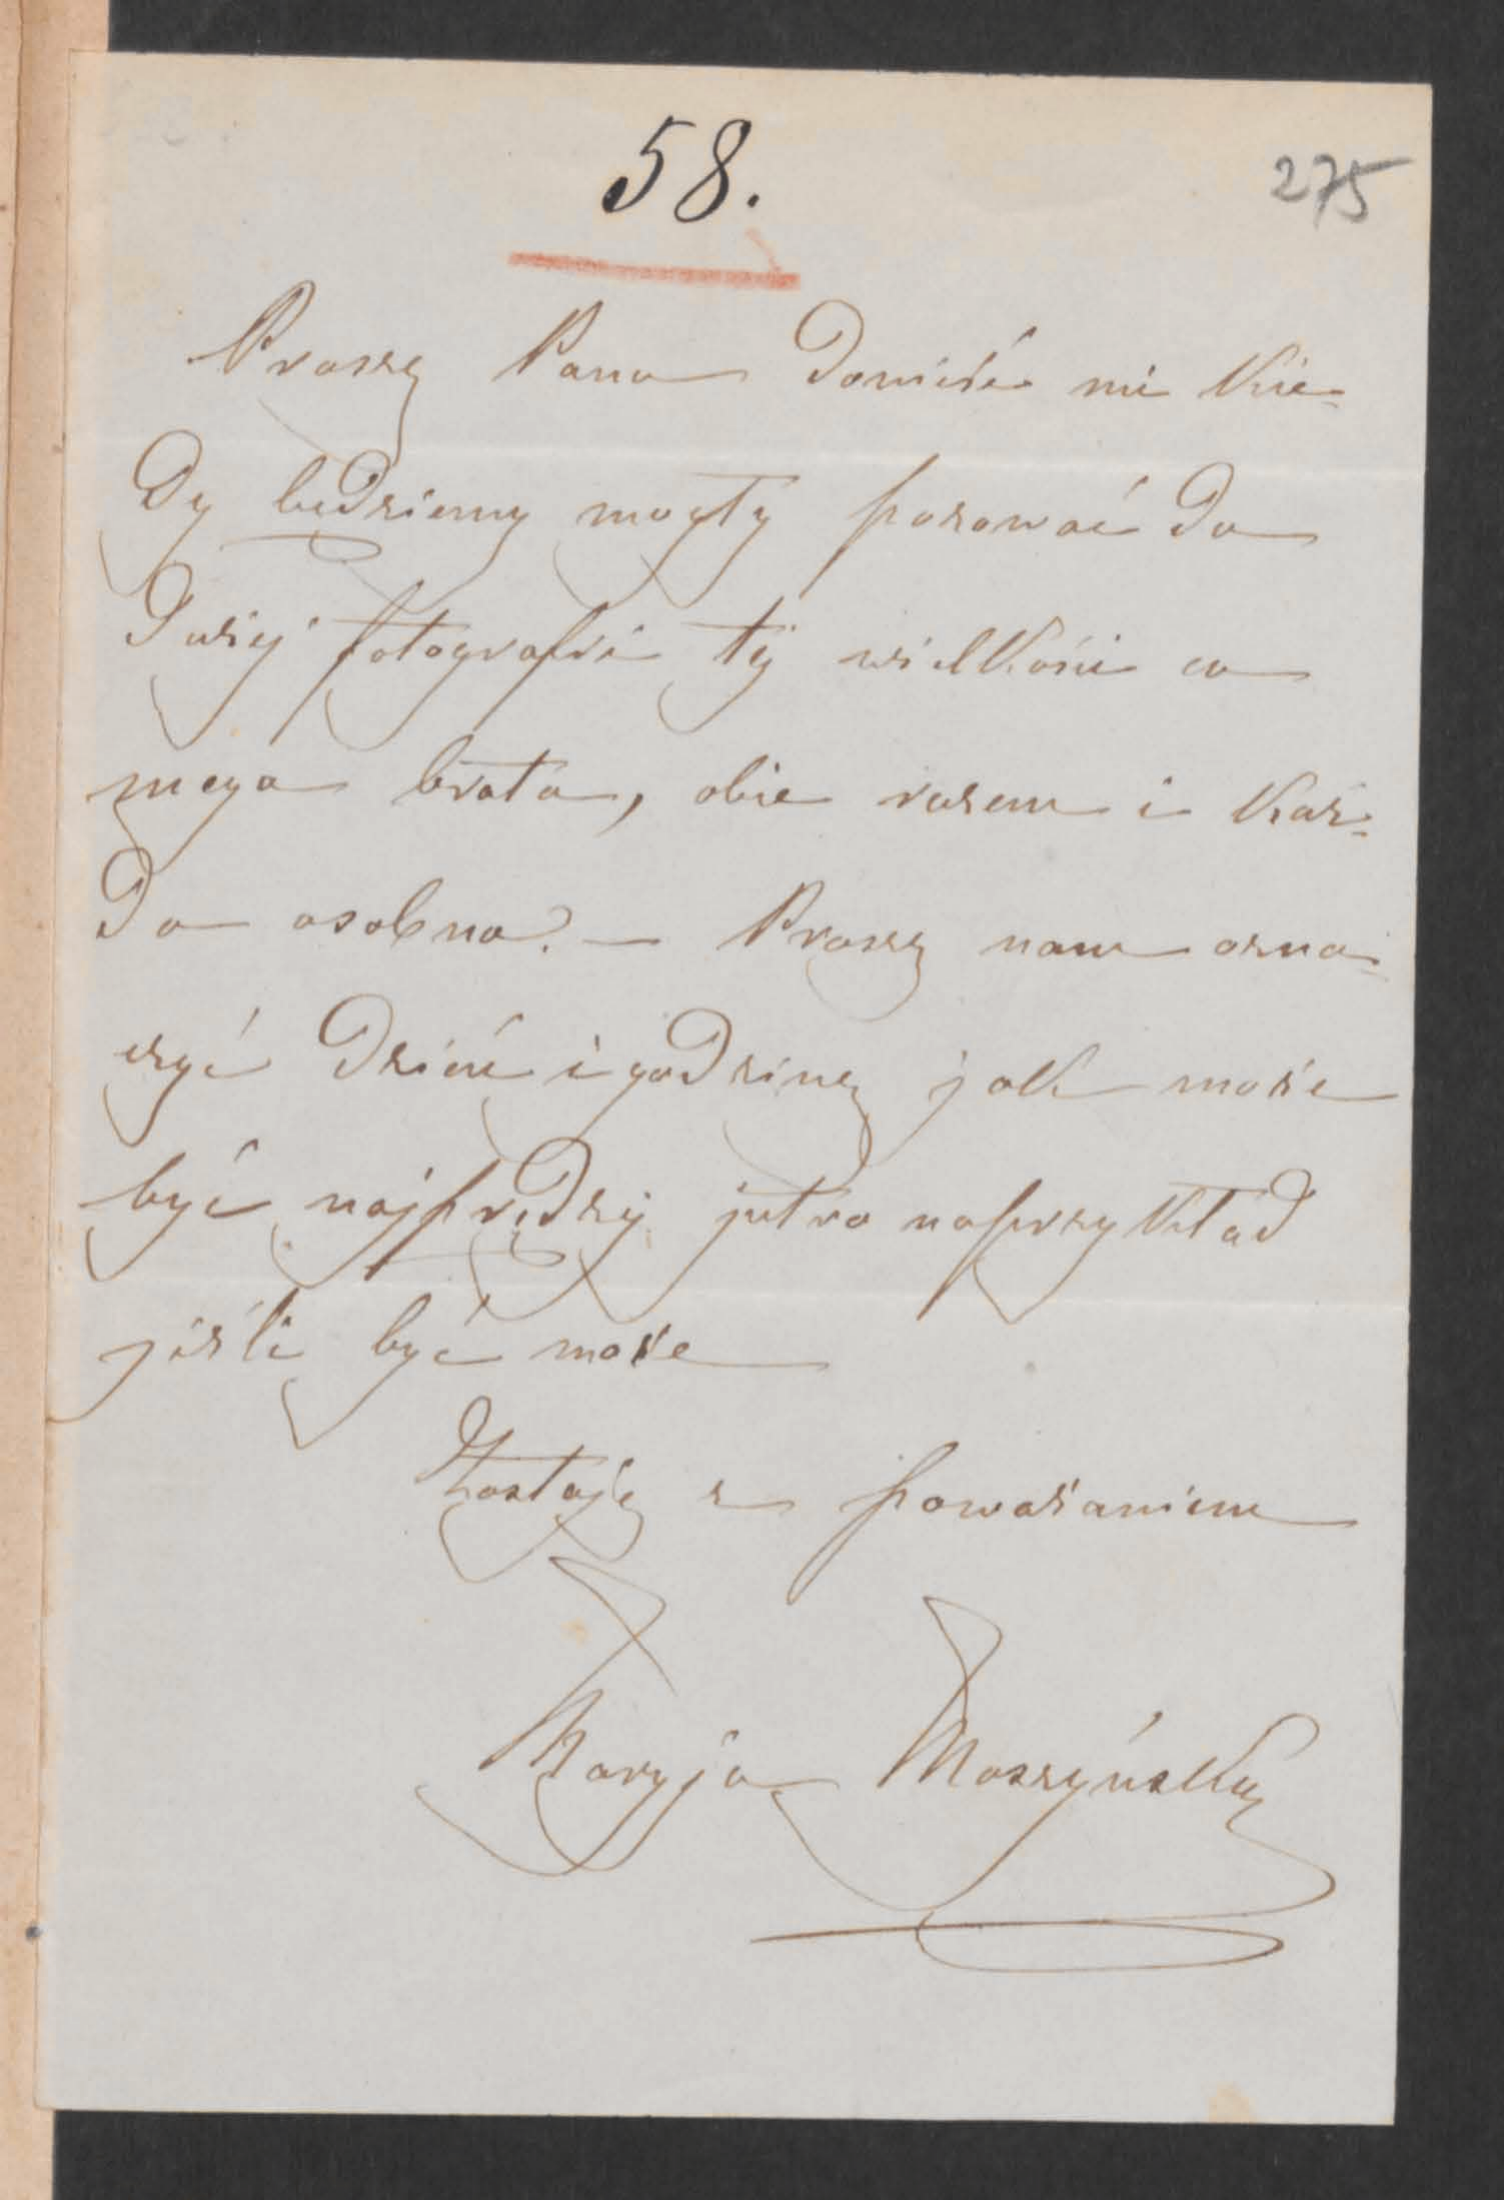 58.
275
Proszę Pana donieść mi kie-
dy będziemy mogły pozować do
dużej fotografii tej wielkości co
mego brata, obie razem i każ-
da osobno? — Proszę nam ozna-
czyć dzień i godzinę jak może
być najprędzej jutro naprzykład
jeśli być może
Zostaję z poważaniem
Maryja Moszyńska